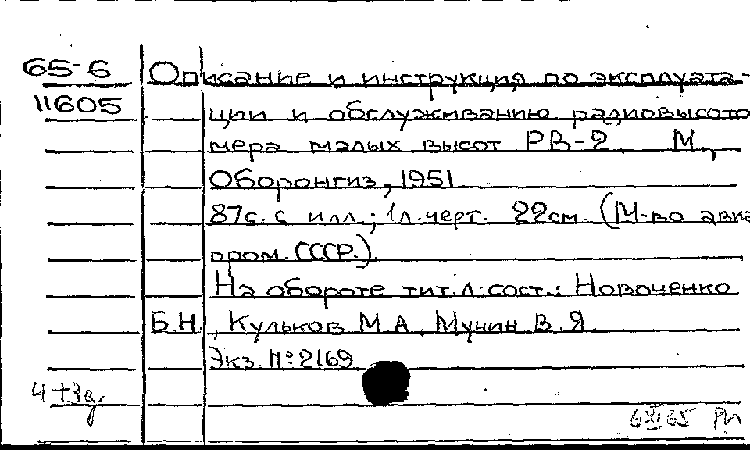 65-6 Описание и инструкция по эксплуата-
11605 ции и обслуживанию радиовысото
мера малых высот РВ-2 М.,
Оборонгиз, 1951.
87с. с илл.; 1л. черт. 22см. (М-во авиа
пром. СССР.)
На обороте тит. л. сост.: Новоченко
Б.Н., Кульков М.А., Мунин В.Я.
Экз. №2169
6 XII 65